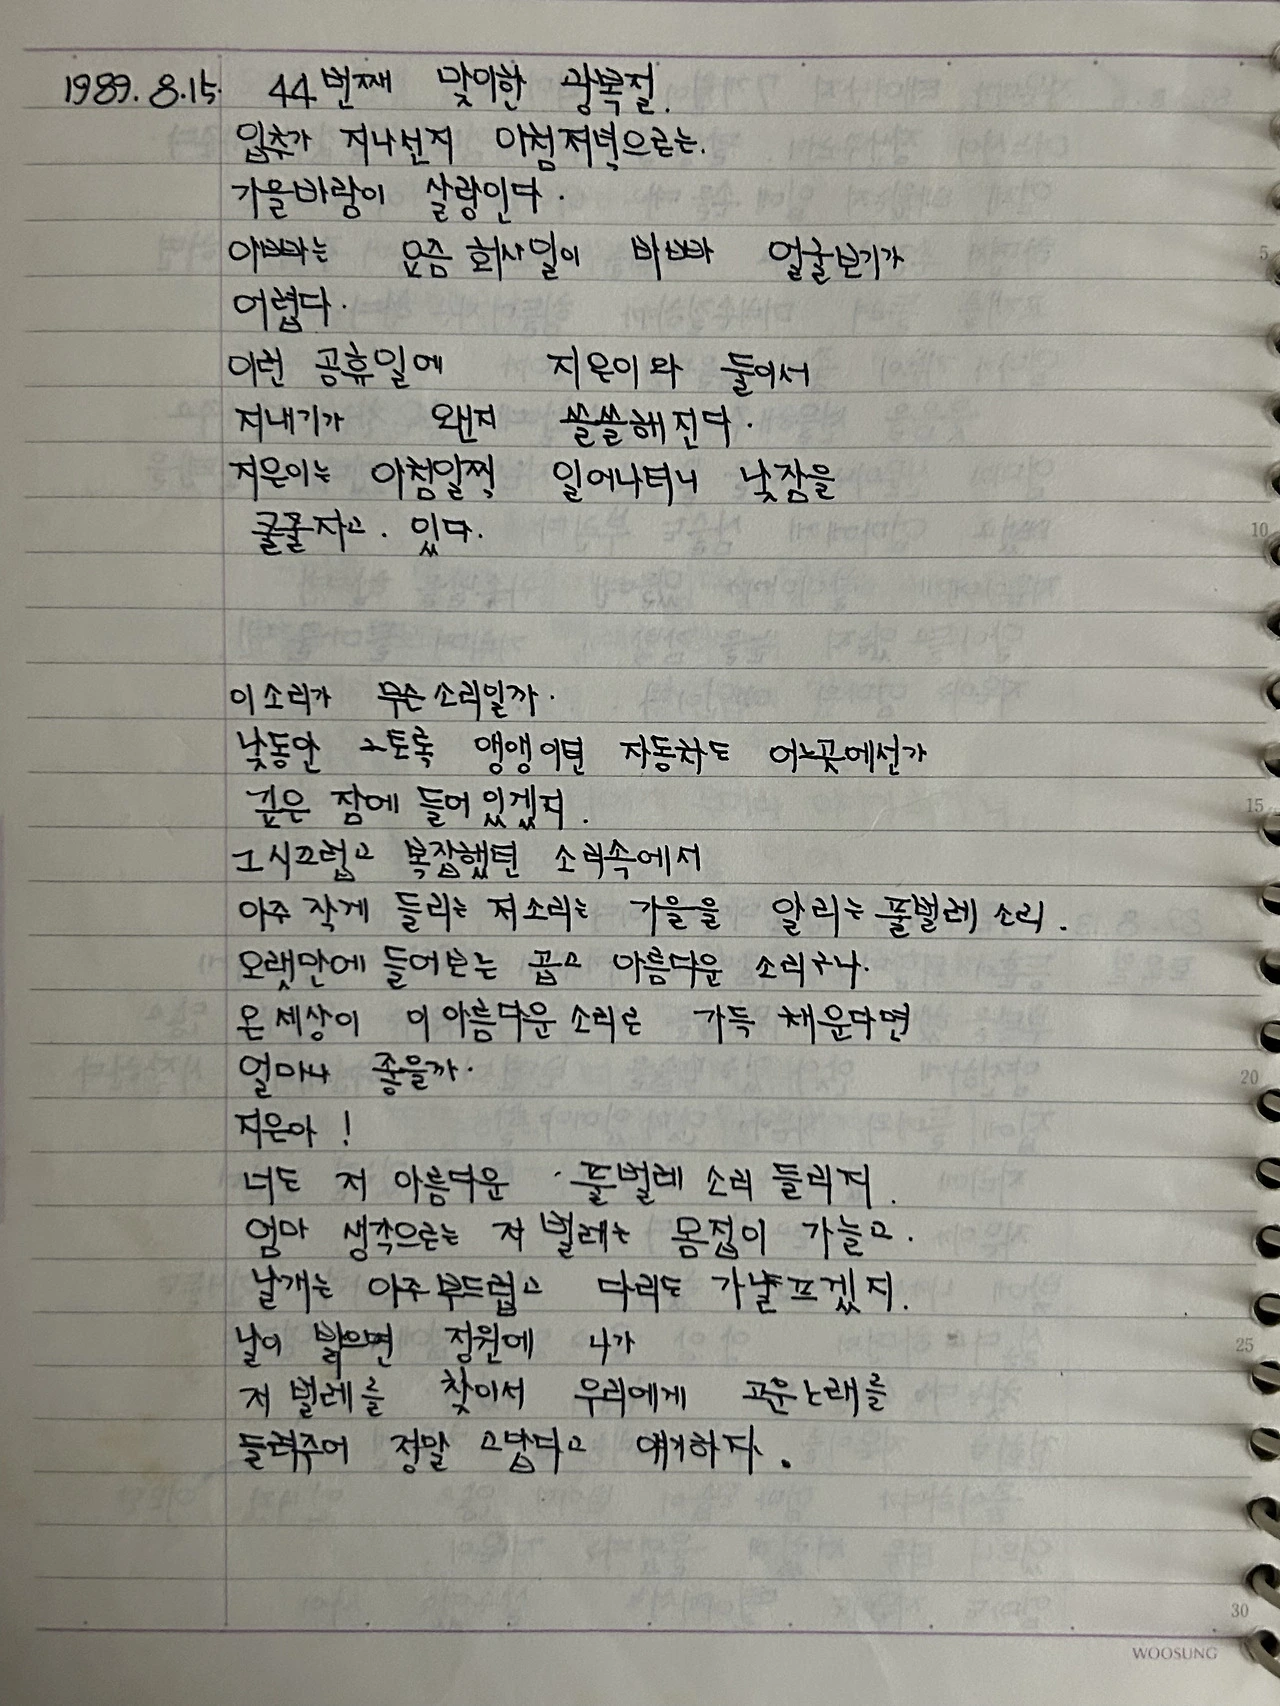 1989. 8. 15. 44번째 맞이한 광복절.
입추가 지나선지 아침저녁으로는.
가을바람이 살랑인다.
아빠는 요즘 회사일이 바빠 얼굴보기가
어렵다.
이런 공휴일에 지은이와 둘이서
지내기가 왠지 쓸쓸해진다.
지은이는 아침일찍 일어나더니 낮잠을
쿨쿨자고. 있다.
이소리가 무슨소리일까.
낮동안 그토록 앵앵이던 자동차도 어느곳에선가
깊은 잠에 들어있겠지.
그시끄럽고 복잡했던 소리속에서
아주 작게 들리는 저소리는 가을을 알리는 풀벌레소리.
오랫만에 들어보는 곱고 아름다운 소리구나.
온세상이 이아름다운소리로 가득 채운다면
얼마나 좋을까.
지은아!
너도 저 아름다운 풀벌레 소리 들리지.
엄마 생각으로는 저벌레는 몸집이 가늘고.
날개는 아주부드럽고 다리도 가냘프겠지.
날이 밝으면 정원에 나가
저벌레를 찾아서 우리에게 고운노래를
들려주어 정말 고맙다고 얘기하자.
5
10
15
20
25
30
WOOSUNG